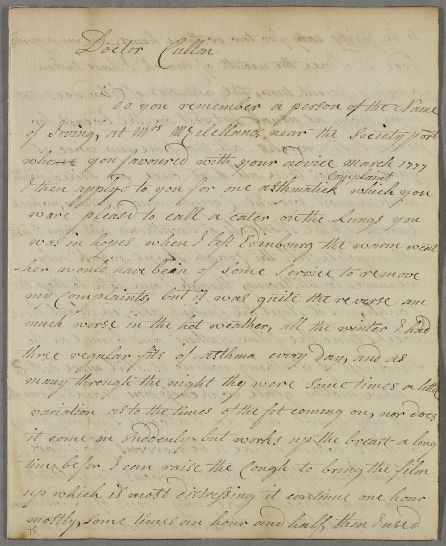 Doctor Cullon
Do you remember a person of the Name
of Irving, at Mrs McClellands near the Society port
whom you favoured with your advice March 1777
Complaint
I then apply'd to you for one asthmatick which you
ware pleased to call a cater on the Lungs you
was in hopes when I left Edinbourg the warm weat
her would have been of some Service to remove
my Complaints, but it was quite the reverse am
much worse in the hot weather, all the winter I had
three regular fits of asthma every day, and as
many through the night they were some times a little
variation as to the times of the fit coming on, nor does
it come on suddenly but works up the breast a long
time befor I can raise the Cough to bring the flim
up which is most distressing it continue one hour
mostly, some times an hour and half, then I used